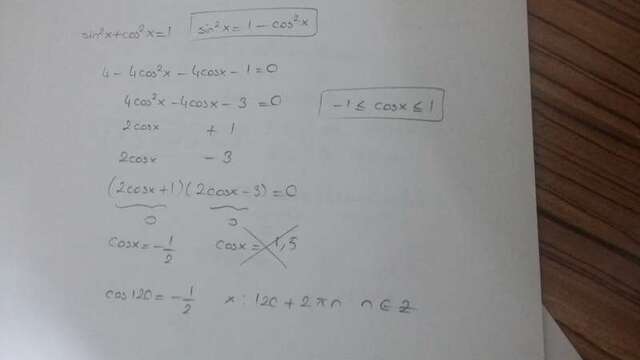 sin²x+cos²x=1 sin²x = 1 - cos²x
4 - 4cos²x - 4cosx - 1 = 0
4cos²x - 4cosx - 3 = 0 -1 ≤ cosx ≤ 1
2cosx + 1
2cosx - 3
(2cosx+1)(2cosx-3) = 0
0 0
cosx = -1/2 cosx = 1,5
cos120 = -1/2 x: 120 + 2πn n ∈ Z